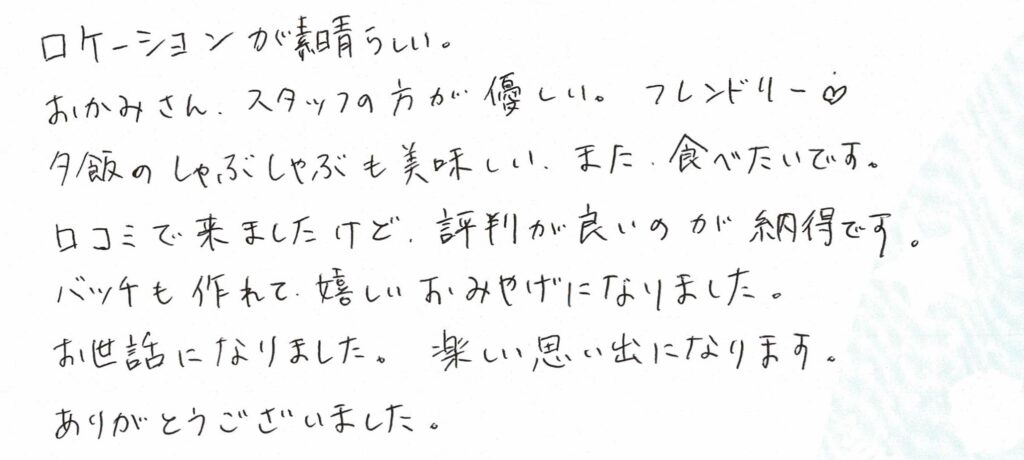 ロケーションが素晴らしい。
おかみさん、スタッフの方が優しい。 フレンドリー♡
夕飯のしゃぶしゃぶも美味しい、また、食べたいです。
口コミで来ましたけど、評判が良いのが納得です。
バッチも作れて、嬉しいおみやげになりました。
お世話になりました。 楽しい思い出になります。
ありがとうございました。